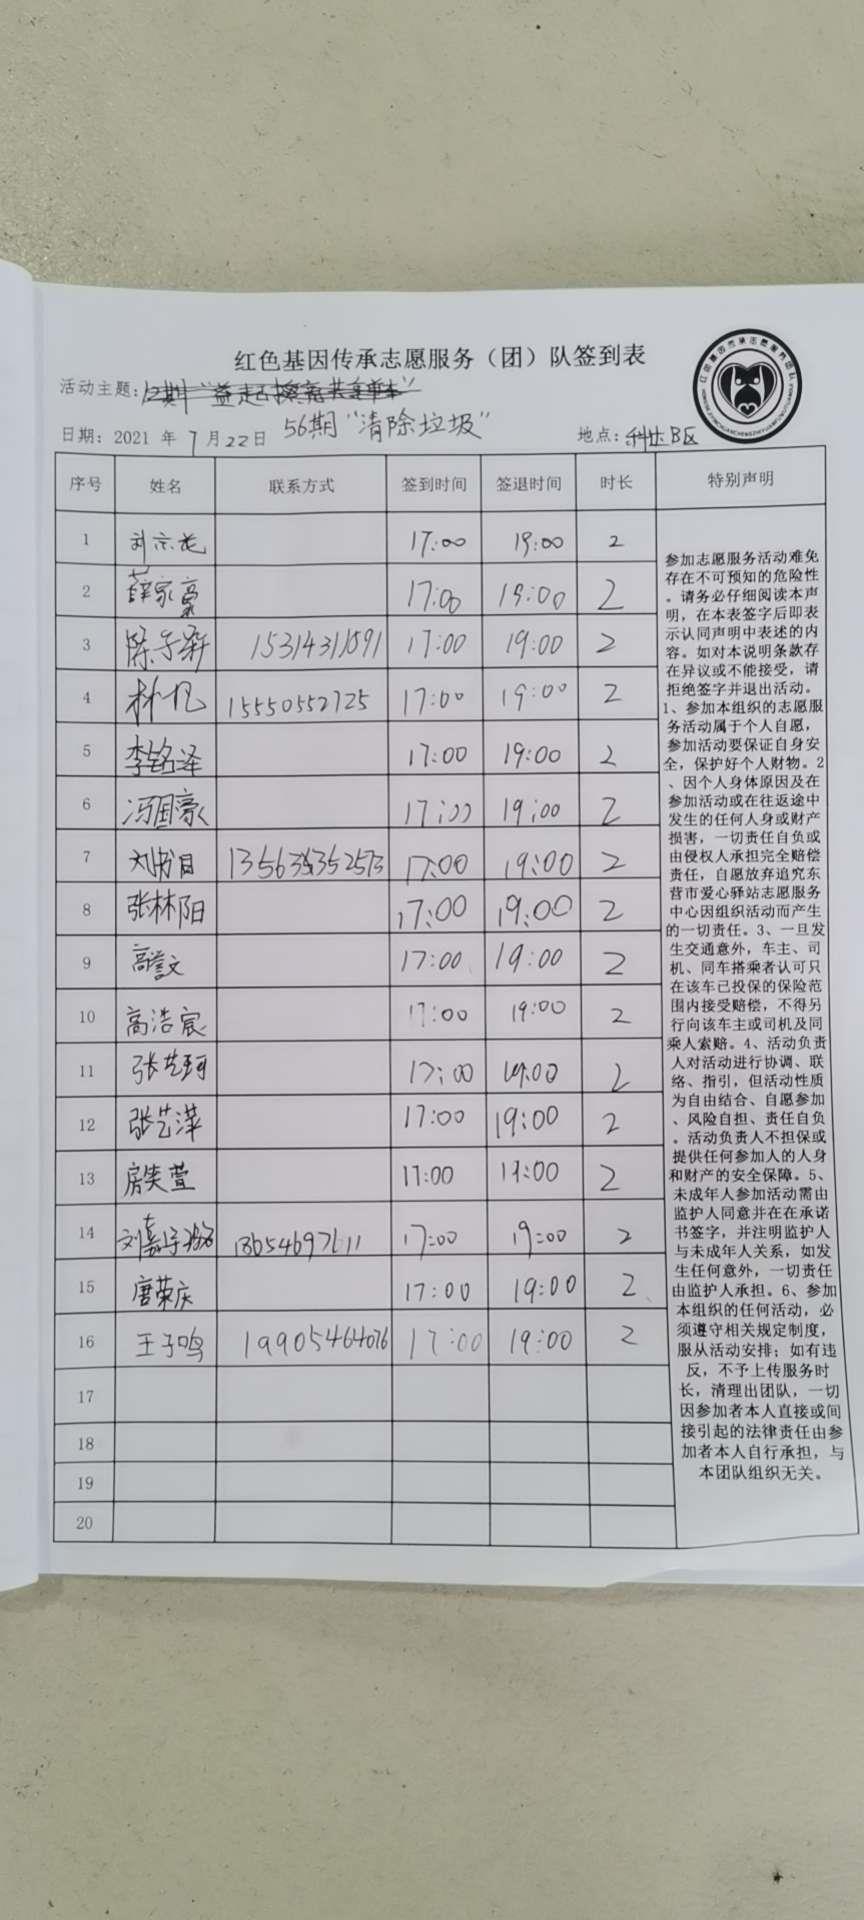 红色基因传承志愿服务（团）队签到表
活动主题：
56期“清除垃圾”
日期：2021 年 7 月 22 日 地点：科达B区
序号 姓名 联系方式 签到时间 签退时间 时长 特别声明
1 刘宗 17:00 19:00 2
2 薛家豪 17:00 19:00 2
3 陈子新 15314311591 17:00 19:00 2
4 林 15550552725 17:00 19:00 2
5 李铭泽 17:00 19:00 2
6 冯国豪 17:00 19:00 2
7 刘书 17:00 19:00 2
8 张林阳 17:00 19:00 2
9 高誉文 17:00 19:00 2
10 高浩宸 17:00 19:00 2
11 张艺珂 17:00 19:00 2
12 张艺萍 17:00 19:00 2
13 萱 17:00 19:00 2
14 刘嘉 17:00 19:00 2
15 唐荣庆 17:00 19:00 2
16 王子鸣 19905464076 17:00 19:00 2
17
18
19
20
参加志愿服务活动难免
存在不可预知的危险性
。请务必仔细阅读本声
明，在本表签字后即表
示认同声明中表述的内
容。如对本说明条款存
在异议或不能接受，请
拒绝签字并退出活动。
1、参加本组织的志愿服
务活动属于个人自愿，
参加活动要保证自身安
全，保护好个人财物。2
、因个人身体原因及在
参加活动或在往返途中
发生的任何人身或财产
损害，一切责任自负或
由侵权人承担完全赔偿
责任，自愿放弃追究东
营市爱心驿站志愿服务
中心因组织活动而产生
的一切责任。3、一旦发
生交通意外，车主、司
机、同车搭乘者认可只
在该车已投保的保险范
围内接受赔偿，不得另
行向该车主或司机及同
乘人索赔。4、活动负责
人对活动进行协调、联
络、指引，但活动性质
为自由结合、自愿参加
、风险自担、责任自负
。活动负责人不担保或
提供任何参加人的人身
和财产的安全保障。5、
未成年人参加活动需由
监护人同意并在在承诺
书签字，并注明监护人
与未成年人关系，如发
生任何意外，一切责任
由监护人承担。6、参加
本组织的任何活动，必
须遵守相关规定制度，
服从活动安排；如有违
反，不予上传服务时
长，清理出团队，一切
因参加者本人直接或间
接引起的法律责任由参
加者本人自行承担，与
本团队组织无关。